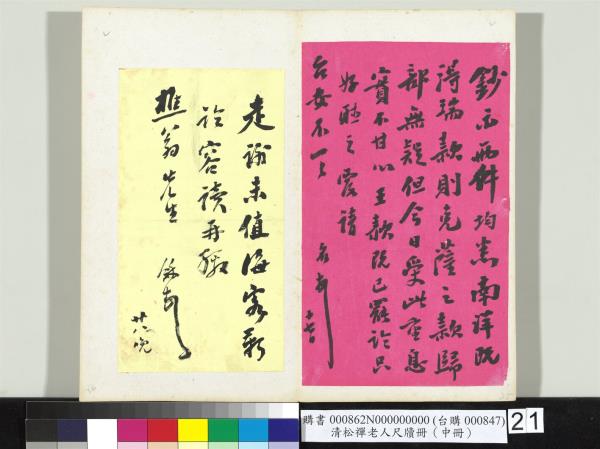 鈔示兩件均悉南洋既
得瑞款則克薩之款歸
部無疑但今日受此重息
實不甘心王款既已罷論只
好聽之覆請
台安不一一
名心叩
走謝未值海客新
論容讀再繳
樵翁先生
廿八晚
購書 000862N000000000 (台購 000847)
清松禪老人尺牘冊（中冊）
21